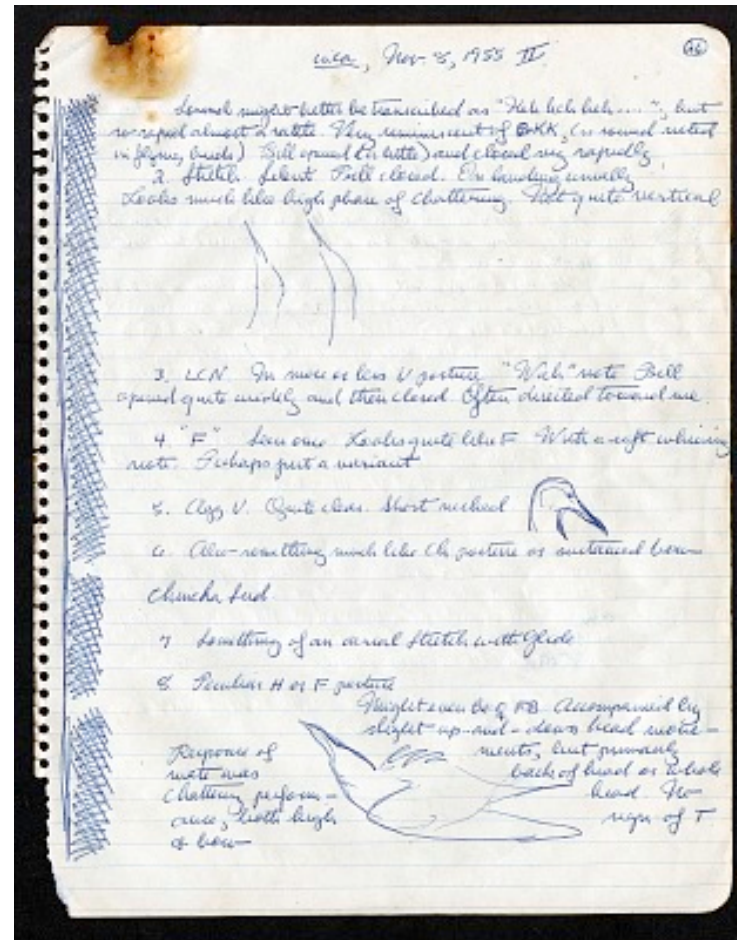 inca, Nov. 8, 1955 II
46
Sound might better be transcribed as "Heh heh heh....", but
so rapid almost a rattle. Very reminiscent of KK, (a sound noted
in flying birds) Bill opened (a little) and closed very rapidly
2. Stretch. Silent Bill closed. On landing usually
Looks much like high phase of Chattering. Not quite vertical
3. LCN. In more or less V posture "Wah" note Bill
opened quite widely and then closed. Often directed toward me.
4. "F" Seen once Looks quite like F With a soft
note. Perhaps just a variant
5. Agg V. Quite clear. Short necked
6. Also something much like Ch posture as sustained low
Chincha Sud.
7 Something of an aerial Stretch with Glide
8. Peculiar H or F posture
Might even be FB Accompanied by
slight up-and-down head move-
ments, but primarily
back of head or whole
head. No
sign of T
Response of
mate was
Chattering perform-
ance, both high
& low